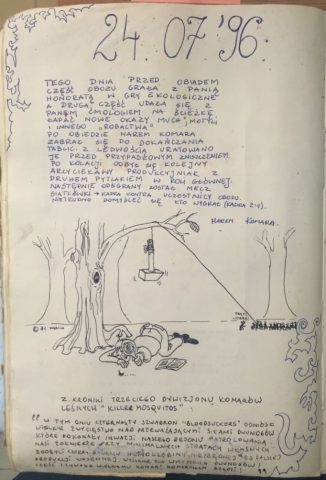 24.07'96.
TEGO DNIA PRZED OBIADEM
CZĘŚĆ OBOZU GRAŁA Z PANIĄ
HONORATĄ W GRY EKOLOGICZNE
A DRUGA CZĘŚĆ UDAŁA SIĘ Z
PANEM ĆMOLOGIEM NA ŚCIEŻKĘ
BADAĆ NOWE OKAZY MUCH, MOTYLI
I INNEGO „ROBACTWA"
PO OBIEDZIE HAREM KOMARA
ZABRAŁ SIĘ DO DOKAŃCZANIA
TABLIC. Z LEDWOŚCIĄ URATOWANO
JE PRZED PRZYPADKOWYM ZNISZCZENIEM.
PO KOLACJI ODBYŁ SIĘ KOLEJNY
ARCYCIEKAWY PRODUKCYJNIAK Z
DRUHEM PYTLAKIEM W ROLI GŁÓWNEJ.
NASTĘPNIE ODEGRANY ZOSTAŁ MECZ
SIATKÓWKI - KADRA KONTRA UCZESTNICY OBOZU.
NIETRUDNO DOMYŚLEĆ SIĘ KTO WYGRAŁ (KADRA 2:1).
HAREM KOMARA.
Z KRONIKI TRZECIEGO DYWIZJONU KOMARÓW
LEŚNYCH "KILLER MOSQUITOS"
W TYM DNIU CZTERNASTY SZWADRON "BLOODSUCKERS" ODNIÓSŁ
WIELKIE ZWYCIĘSTWO NAD PRZEWAŻAJĄCYMI SIŁAMI DWUNOGÓW
KTÓRE DOKONAŁY INWAZJI NASZEGO REJONU PATROLOWANIA
NASI ŻOŁNIERZE PRZY MINIMALNYCH STRATACH WŁASNYCH